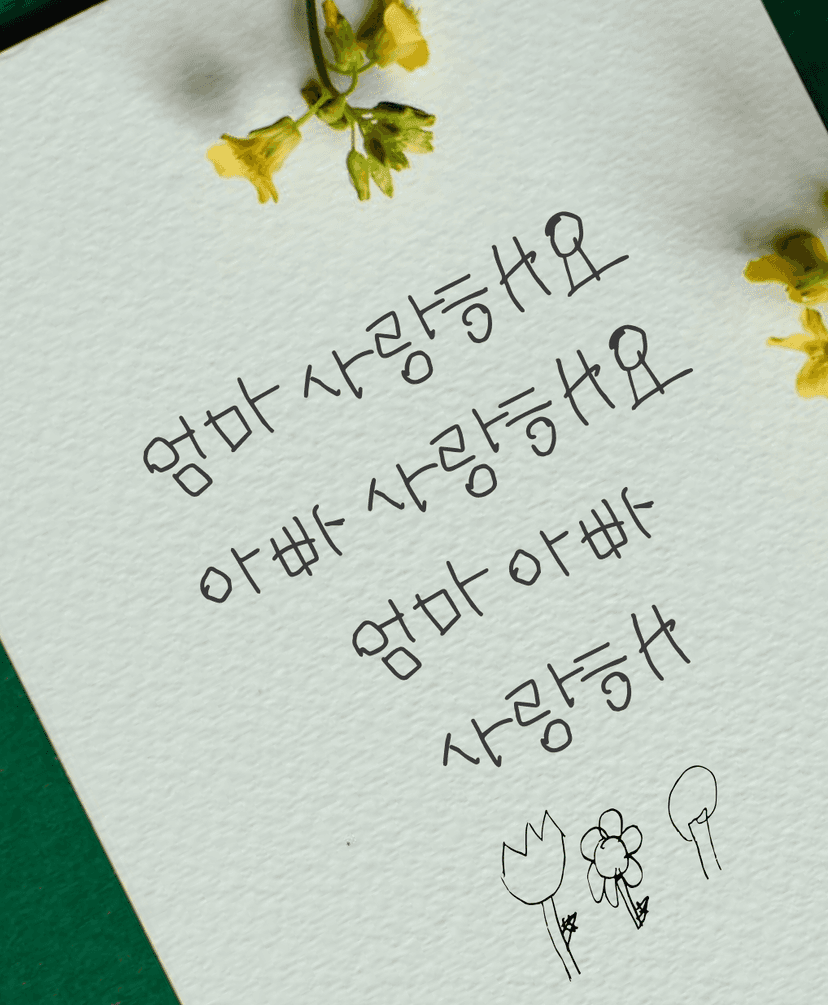 엄마 사랑해요
아빠 사랑해요
엄마 아빠
사랑해